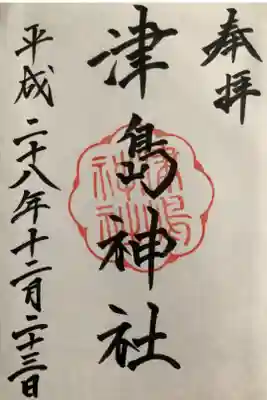 奉拝
津島神社
平成二十八年十二月二十三日